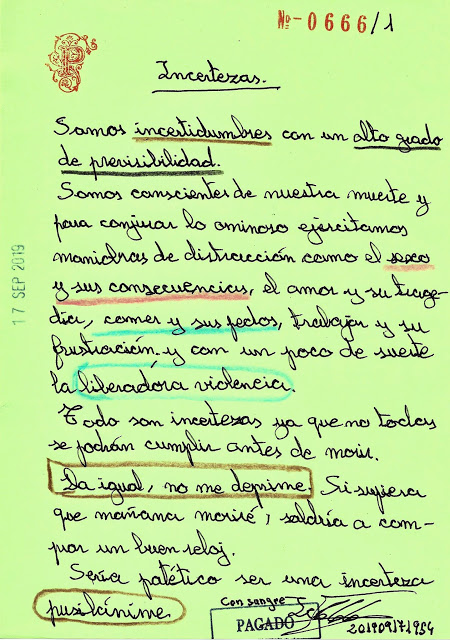 Nº-0666/1
Incertezas.
Somos incertidumbres con un alto grado
de previsibilidad.
Somos conscientes de nuestra muerte y
para conjurar lo ominoso ejercitamos
maniobras de distracción como el sexo
y sus consecuencias, el amor y su trage-
dia, comer y sus pedos, trabajar y su
frustración y con un poco de suerte
la liberadora violencia.
Todo son incertezas ya que no todas
se podrán cumplir antes de morir.
Da igual, no me deprime. Si supiera
que mañana moriré, saldría a com-
prar un buen reloj.
Sería patético ser una incerteza
pusilánime.
17 SEP 2019
Con sangre
PAGADO
201909171954